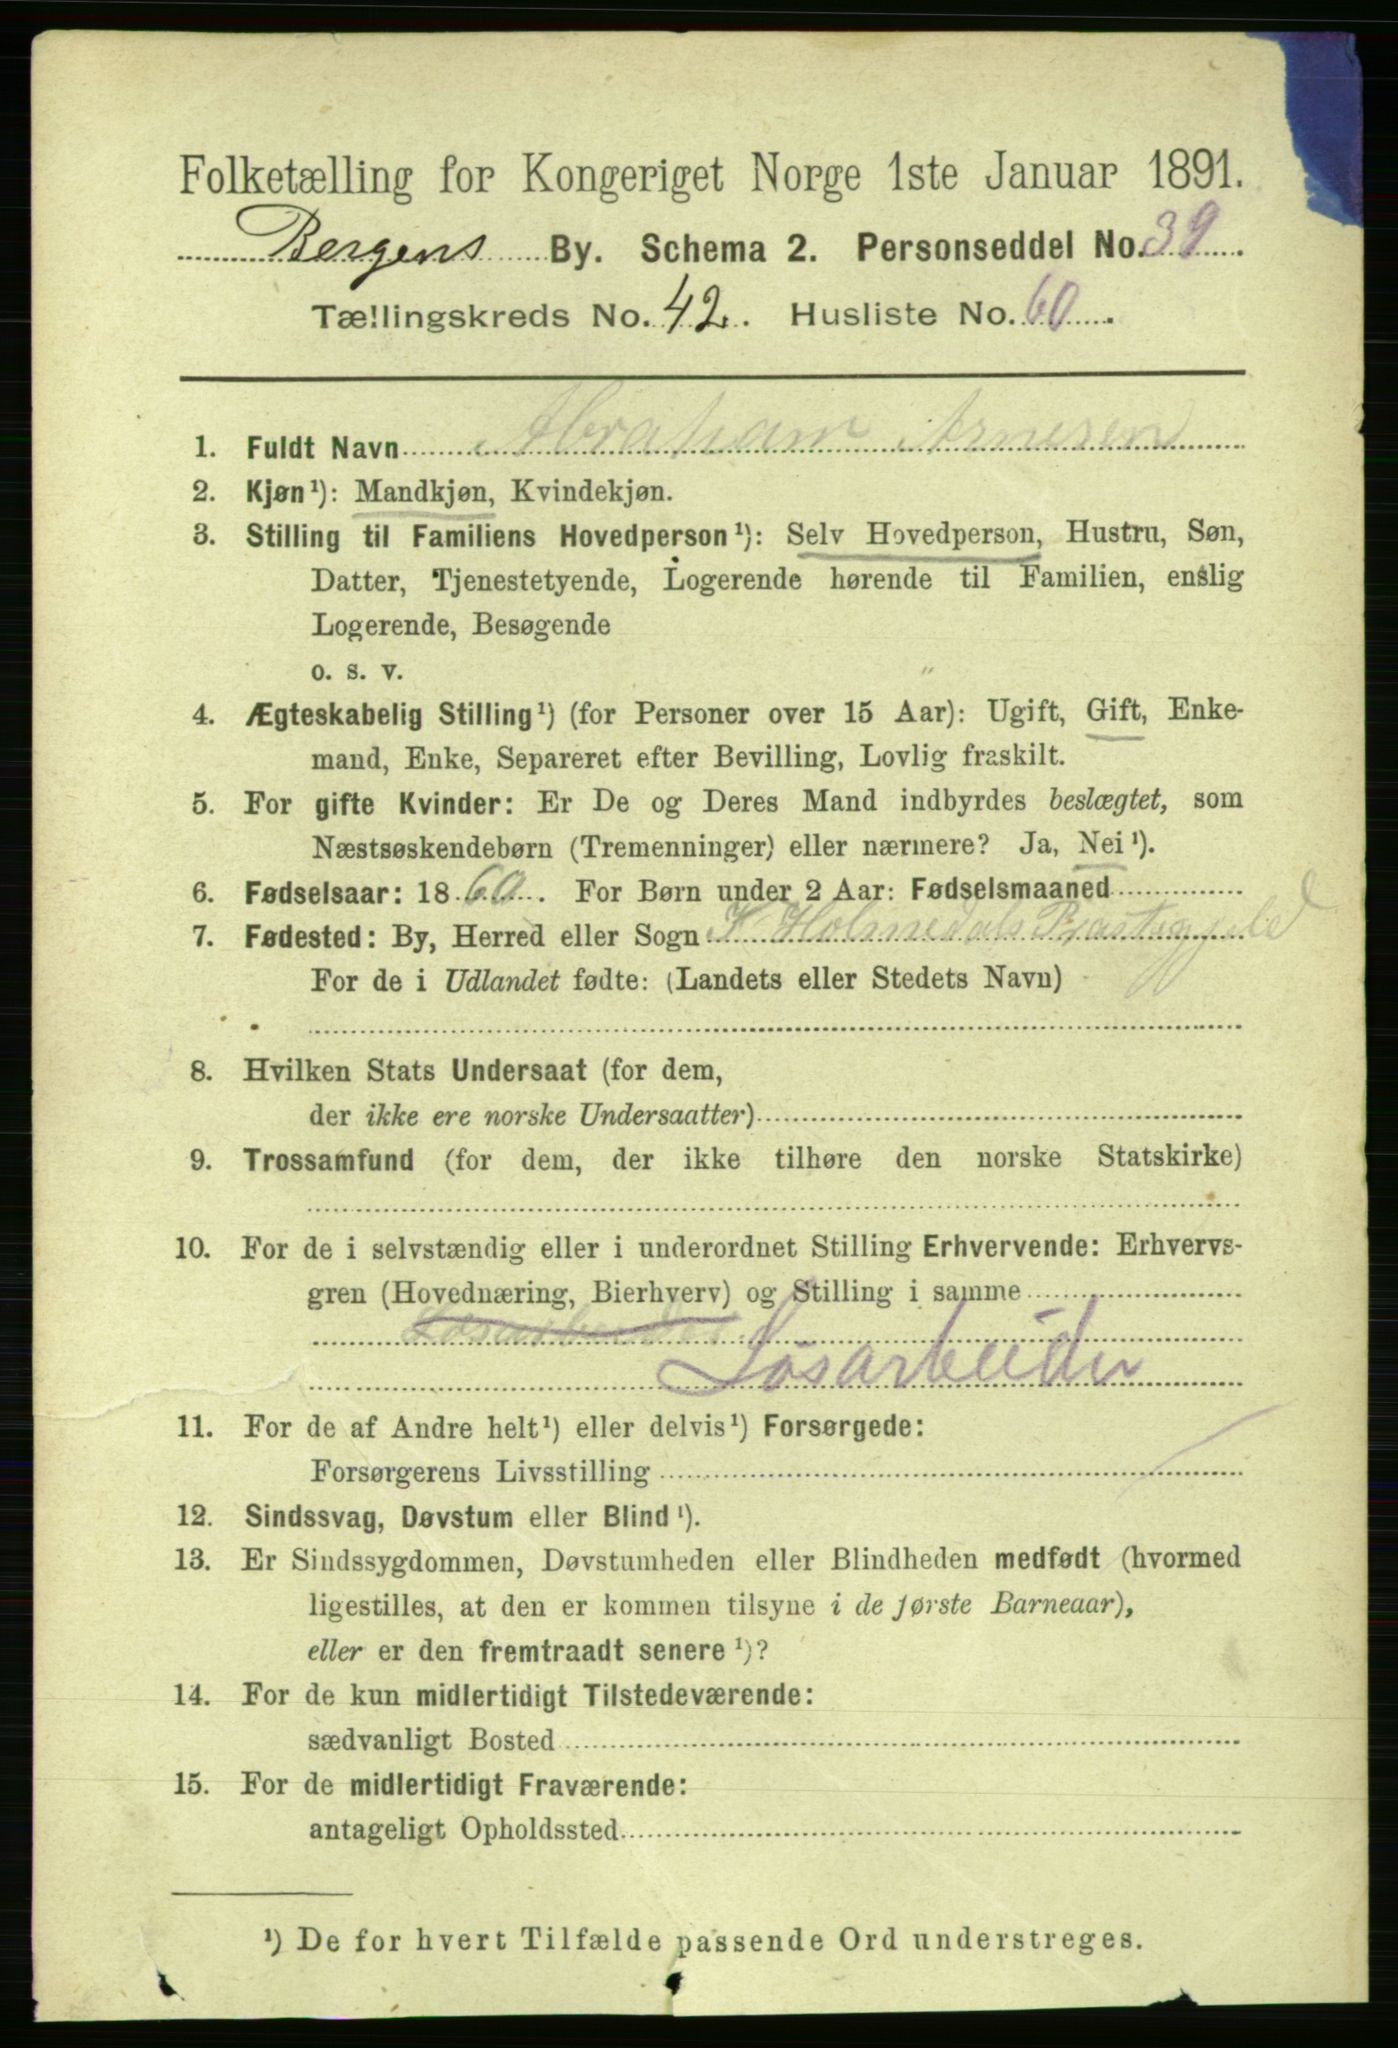 Folketælling for Kongeriget Norge 1ste Januar 1891.
Bergens By. Schema 2. Personseddel No. 39.
Tællingskreds No. 42. Husliste No. 60.
1. Fuldt Navn Abraham Arnesen
2. Kjøn¹): Mandkjøn, Kvindekjøn.
3. Stilling til Familiens Hovedperson¹): Selv Hovedperson, Hustru, Søn,
Datter, Tjenestetyende, Logerende hørende til Familien, enslig
Logerende, Besøgende
o. s. v.
4. Ægteskabelig Stilling¹) (for Personer over 15 Aar): Ugift, Gift, Enke-
mand, Enke, Separeret efter Bevilling, Lovlig fraskilt.
5. For gifte Kvinder: Er De og Deres Mand indbyrdes beslægtet, som
Næstsøskendebørn (Tremenninger) eller nærmere? Ja, Nei¹).
6. Fødselsaar: 1860. For Børn under 2 Aar: Fødselsmaaned
7. Fødested: By, Herred eller Sogn Holmedals Præstegjeld
For de i Udlandet fødte: (Landets eller Stedets Navn)
8. Hvilken Stats Undersaat (for dem,
der ikke ere norske Undersaatter)
9. Trossamfund (for dem, der ikke tilhøre den norske Statskirke)
10. For de i selvstændig eller i underordnet Stilling Erhvervende: Erhvervs-
gren (Hovednæring, Bierhverv) og Stilling i samme
Løsarbeider
Løsarbeider
11. For de af Andre helt¹) eller delvis¹) Forsørgede:
Forsørgerens Livsstilling
12. Sindssvag, Døvstum eller Blind¹).
13. Er Sindssygdommen, Døvstumheden eller Blindheden medfødt (hvormed
ligestilles, at den er kommen tilsyne i de første Barneaar),
eller er den fremtraadt senere¹)?
14. For de kun midlertidigt Tilstedeværende:
sædvanligt Bosted
15. For de midlertidigt Fraværende:
antageligt Opholdssted
¹) De for hvert Tilfælde passende Ord understreges.